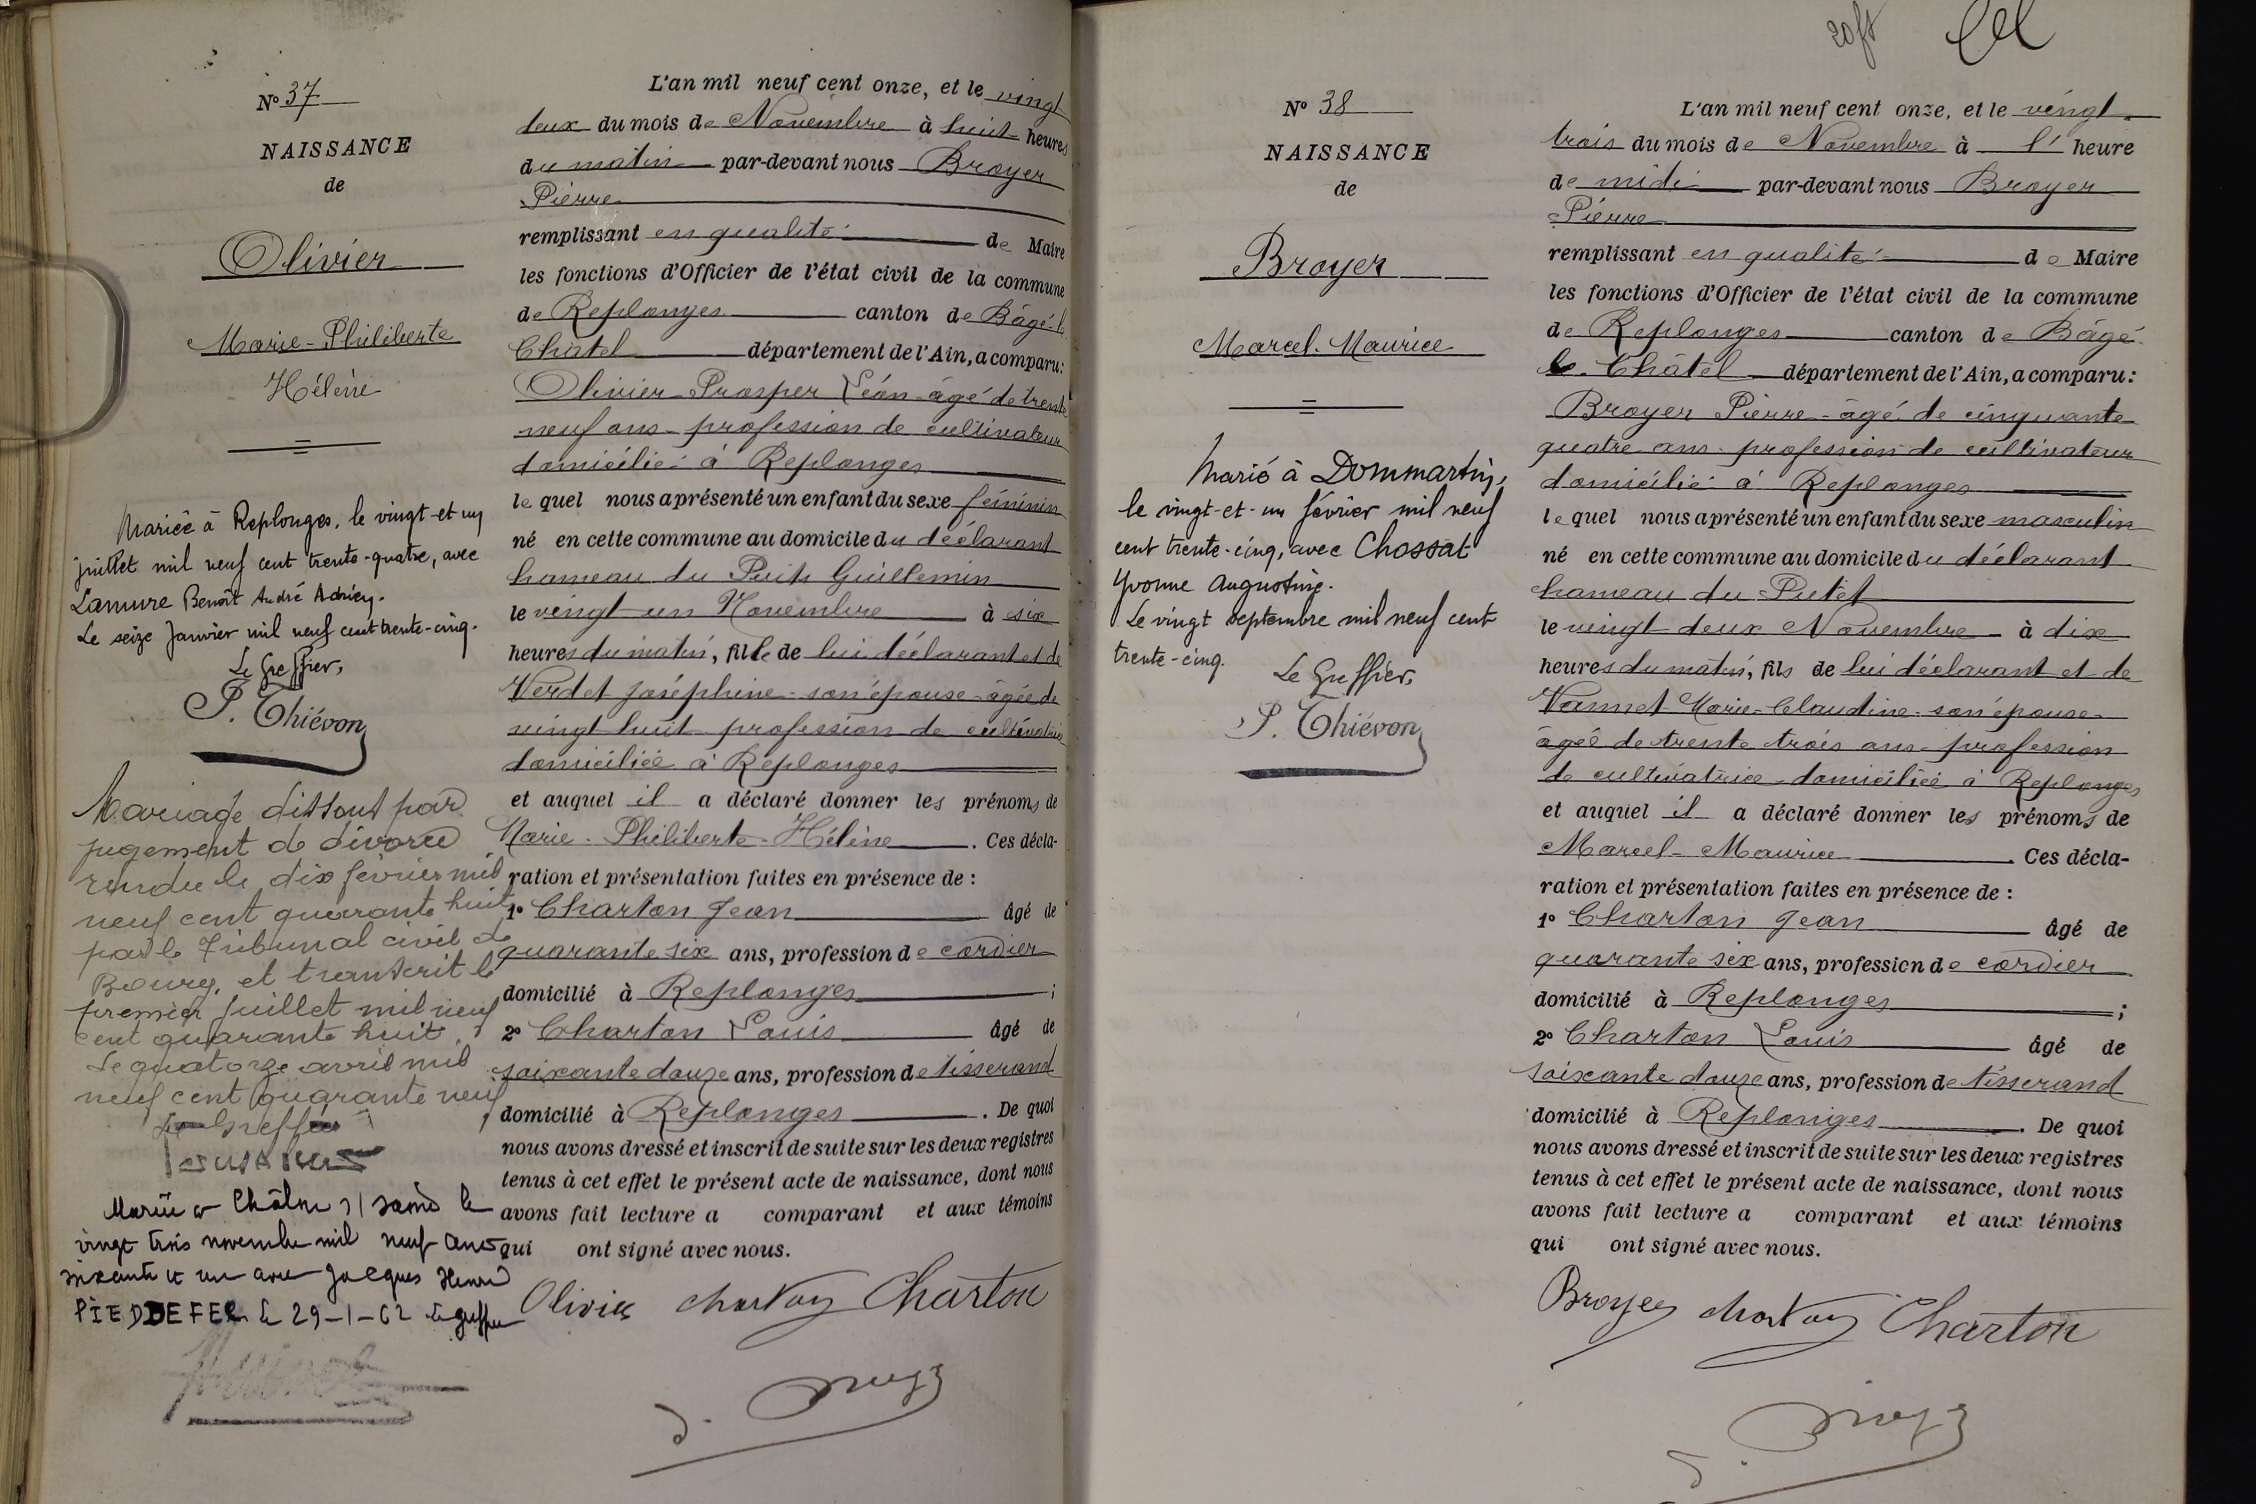 N° 37
NAISSANCE
de
Olivier
Marie-Philiberte
Hélène
Mariée à Replonges, le vingt-et-un
juillet mil neuf cent trente-quatre, avec
Lamure Benoît André Adrien.
Le seize Janvier mil neuf cent trente-cinq.
Le Greffier,
P. Thiévon
Mariage dissout par
jugement de divorce
rendu le dix février mil
neuf cent quarante huit
par le Tribunal civil de
Bourg, et transcrit le
premier Juillet mil neuf
cent quarante huit.
Le quatorze avril mil
neuf cent quarante neuf
Le Greffier
Mariée à Châlon s/ saône le
vingt trois novembre mil neuf cent
soixante et un avec Jacques Henri
PIEDDEFER le 29-1-62 le greffier
L'an mil neuf cent onze, et le vingt
deux du mois de Novembre à huit heures
du matin par-devant nous Broyer
Pierre
remplissant en qualité de Maire
les fonctions d'Officier de l'état civil de la commune
de Replonges canton de Bâgé-le
Châtel département de l'Ain, a comparu:
Olivier Prosper Léon âgé de trente
neuf ans profession de cultivateur
domicilié à Replonges
lequel nous a présenté un enfant du sexe féminin
né en cette commune au domicile du déclarant
hameau du Puits Guillemin
le vingt un Novembre à six
heures du matin, fille de lui déclarant et de
Verdet Joséphine son épouse âgée de
vingt huit profession de cultivatrice
domiciliée à Replonges
et auquel il a déclaré donner les prénoms de
Marie-Philiberte-Hélène. Ces décla-
ration et présentation faites en présence de :
1° Charton Jean âgé de
quarante six ans, profession de cordier
domicilié à Replonges ;
2° Charton Louis âgé de
soixante douze ans, profession de tisserand
domicilié à Replonges. De quoi
nous avons dressé et inscrit de suite sur les deux registres
tenus à cet effet le présent acte de naissance, dont nous
avons fait lecture a comparant et aux témoins
qui ont signé avec nous.
Olivier Charton Charton
20f8
N° 38
NAISSANCE
de
Broyer
Marcel-Maurice
Marié à Dommartin,
le vingt-et-un février mil neuf
cent trente-cinq, avec Chossat
Yvonne Augustine.
Le vingt septembre mil neuf cent
trente-cinq.
Le Greffier,
P. Thiévon
L'an mil neuf cent onze, et le vingt
trois du mois de Novembre à l' heure
de midi par-devant nous Broyer
Pierre
remplissant en qualité de Maire
les fonctions d'Officier de l'état civil de la commune
de Replonges canton de Bâgé
le-Châtel département de l'Ain, a comparu:
Broyer Pierre âgé de cinquante
quatre ans profession de cultivateur
domicilié à Replonges
lequel nous a présenté un enfant du sexe masculin
né en cette commune au domicile du déclarant
hameau du Putet
le vingt deux Novembre à dix
heures du matin, fils de lui déclarant et de
Vannet Marie-Claudine son épouse
âgée de trente trois ans profession
de cultivatrice domiciliée à Replonges
et auquel il a déclaré donner les prénoms de
Marcel-Maurice. Ces décla-
ration et présentation faites en présence de :
1° Charton Jean âgé de
quarante six ans, profession de cordier
domicilié à Replonges ;
2° Charton Louis âgé de
soixante douze ans, profession de tisserand
domicilié à Replonges. De quoi
nous avons dressé et inscrit de suite sur les deux registres
tenus à cet effet le présent acte de naissance, dont nous
avons fait lecture a comparant et aux témoins
qui ont signé avec nous.
Broyer Charton Charton